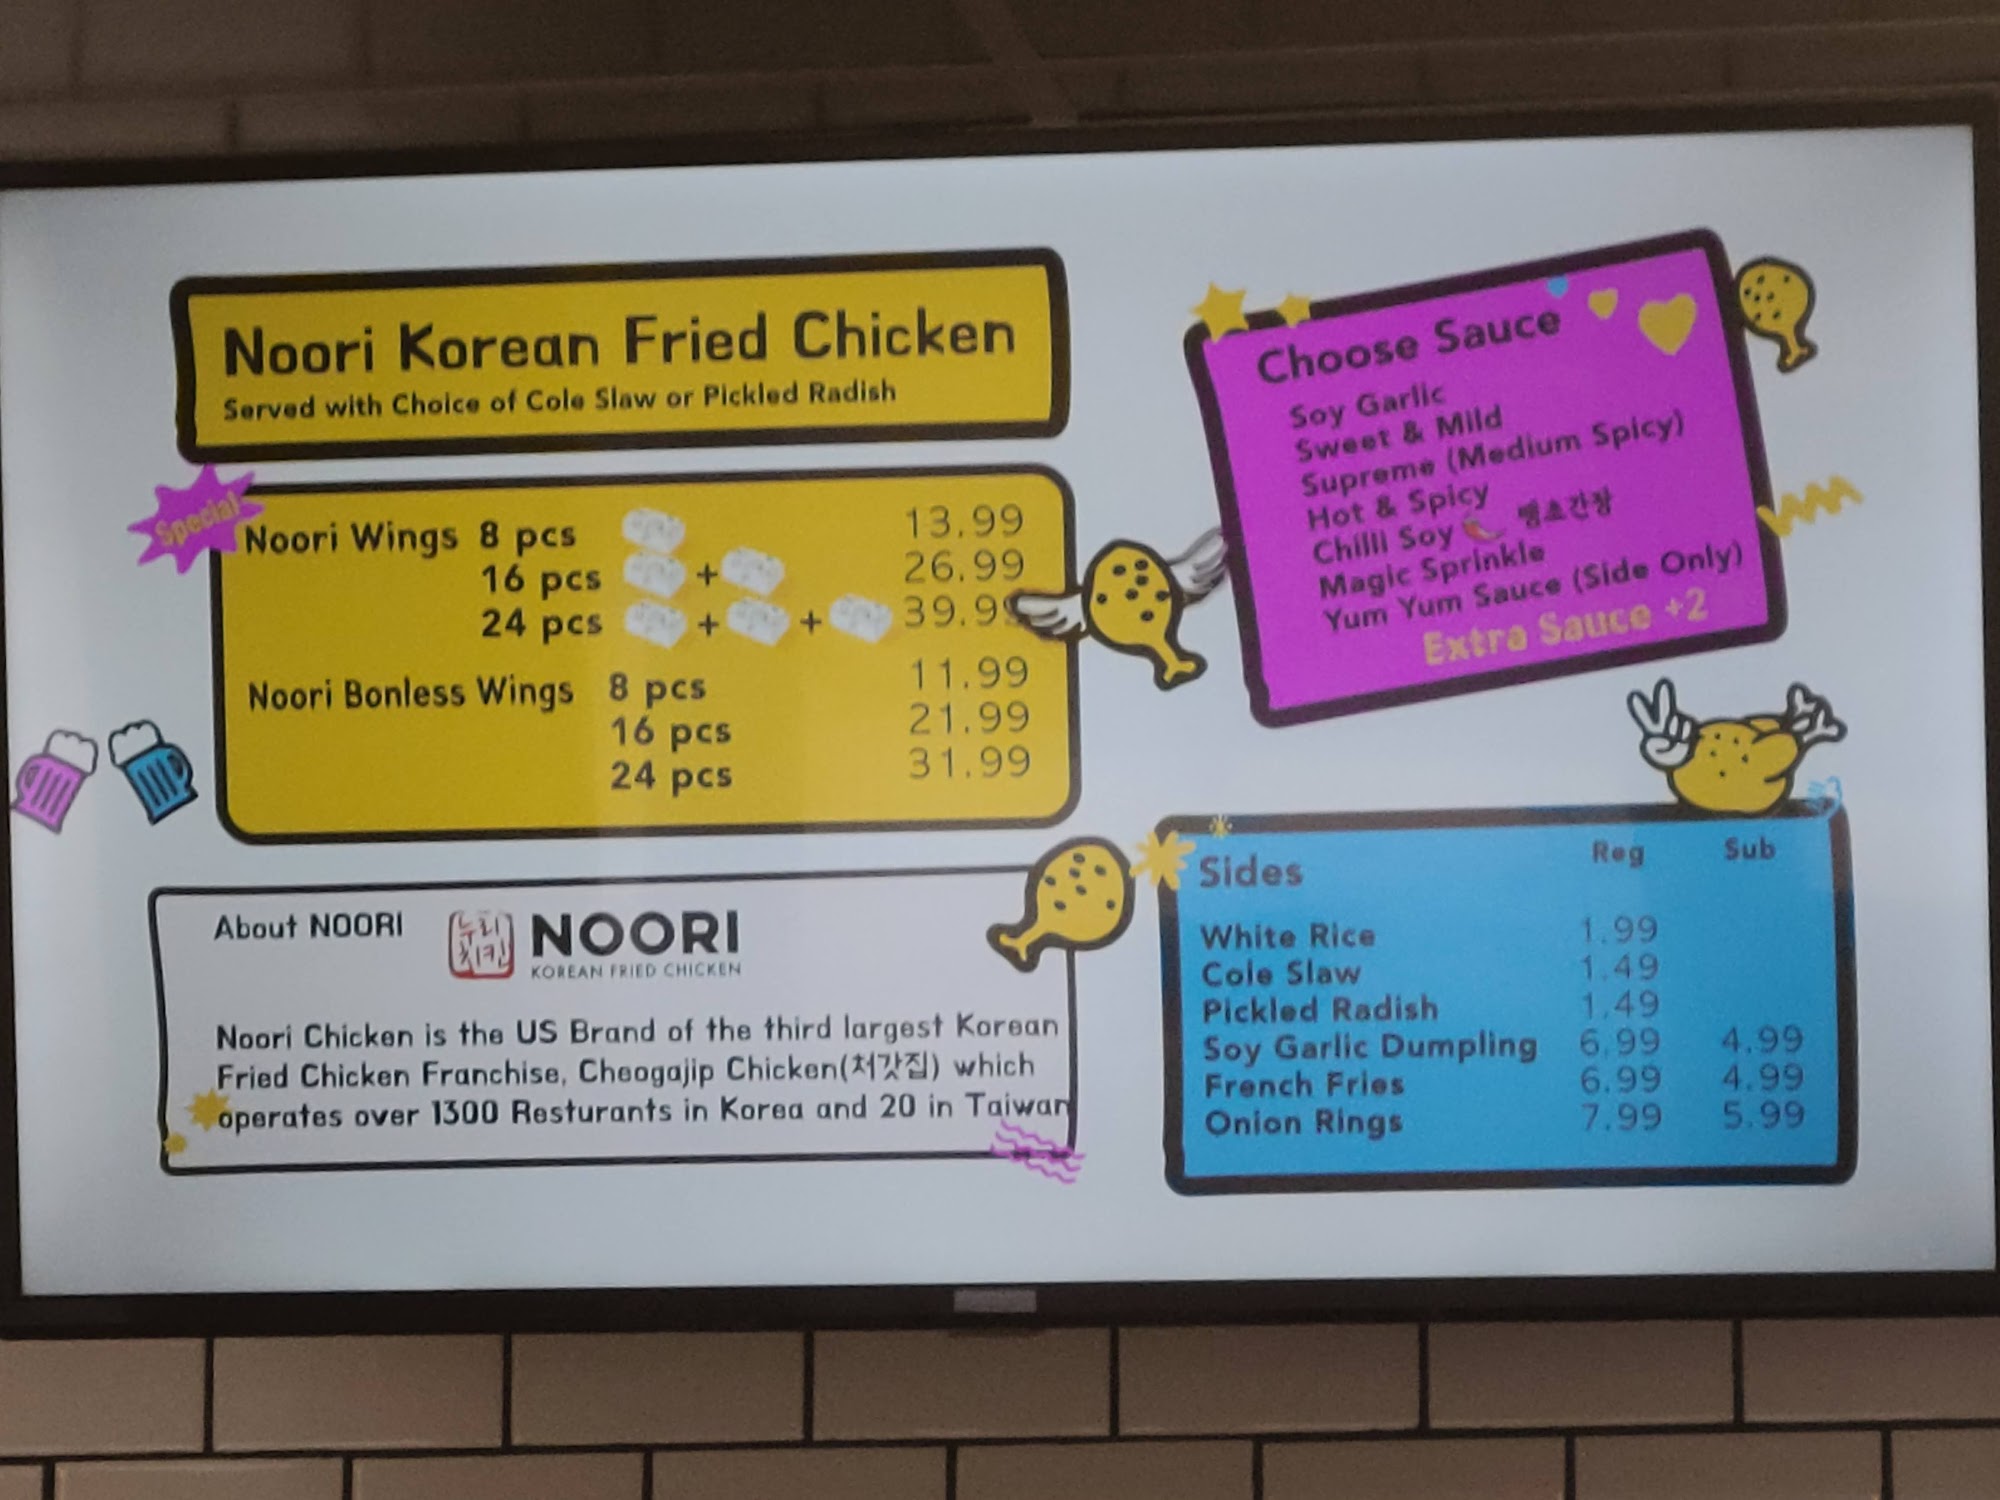 Noori Korean Fried Chicken
Served with Choice of Cole Slaw or Pickled Radish
Special
Noori Wings 8 pcs 13.99
16 pcs + 26.99
24 pcs + + 39.99
Noori Bonless Wings 8 pcs 11.99
16 pcs 21.99
24 pcs 31.99
About NOORI
누리
치킨
NOORI
KOREAN FRIED CHICKEN
Noori Chicken is the US Brand of the third largest Korean
Fried Chicken Franchise, Cheogajip Chicken(처갓집) which
operates over 1300 Resturants in Korea and 20 in Taiwan
Choose Sauce
Soy Garlic
Sweet & Mild
Supreme (Medium Spicy)
Hot & Spicy
Chilli Soy 땡초간장
Magic Sprinkle
Yum Yum Sauce (Side Only)
Extra Sauce +2
Sides Reg Sub
White Rice 1.99
Cole Slaw 1.49
Pickled Radish 1.49
Soy Garlic Dumpling 6.99 4.99
French Fries 6.99 4.99
Onion Rings 7.99 5.99